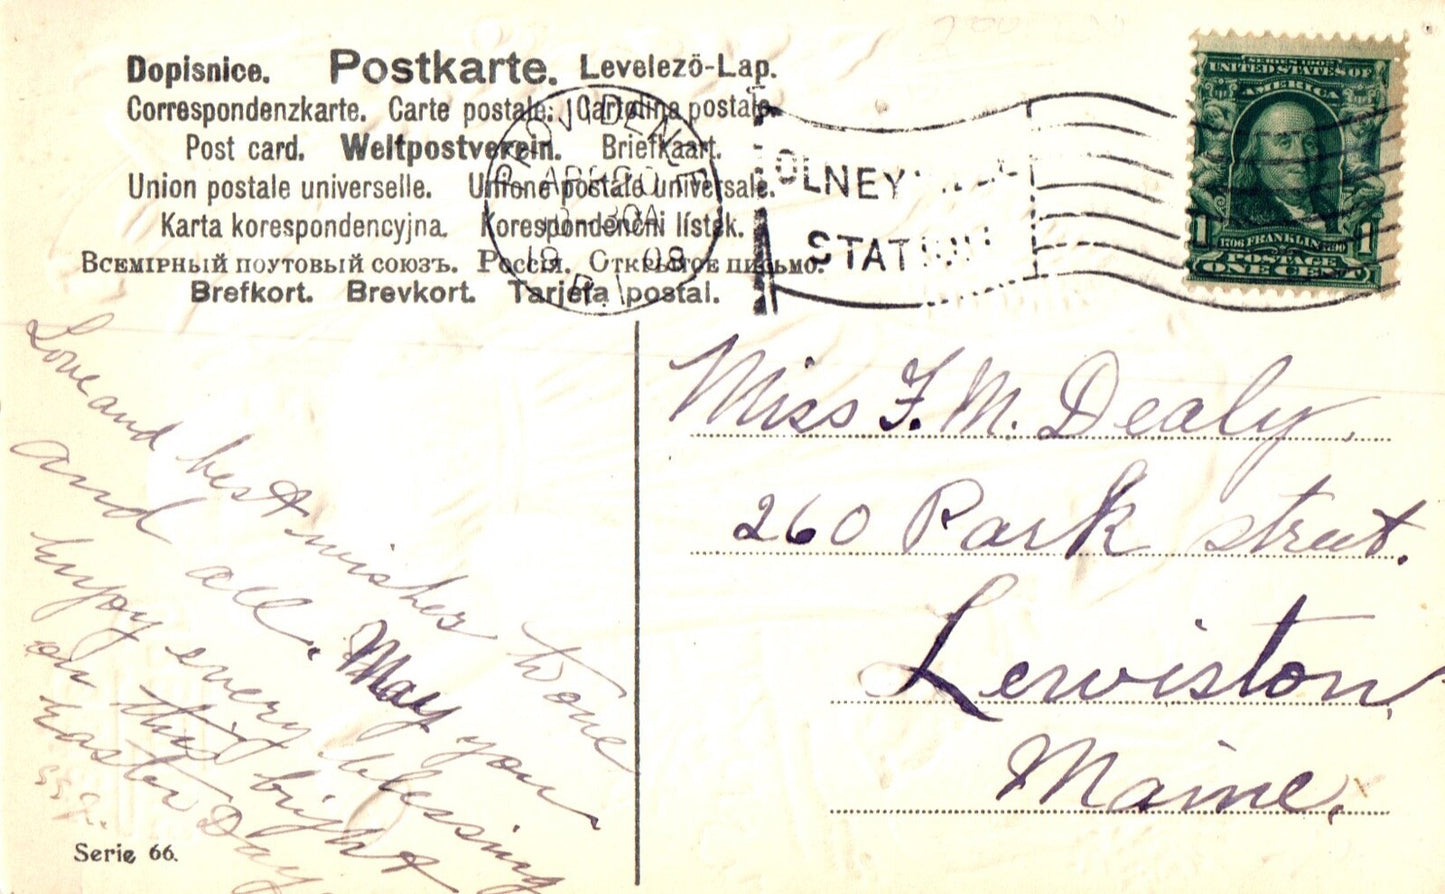 Dopisnice. Postkarte. Levelezö-Lap.
Correspondenzkarte. Carte postale. Cartolina postale.
Post card. Weltpostverein. Briefkaart.
Union postale universelle. Unione postale universale.
Karta korespondencyjna. Korespondenční lístek.
Всемірный поутовый союзъ. Россія. Открытое письмо.
Brefkort. Brevkort. Tarjeta postal.
PROVIDENCE
APR
19 08
R.I.
OLNEYVILLE
STATION
SERIES 1902
UNITED STATES OF
AMERICA
1 1706 FRANKLIN 1790 1
POSTAGE
ONE CENT
Miss F. M. Dealy.
260 Park street.
Lewiston,
Maine.
Love and best wishes to one
and all. May you
enjoy every blessing
on this bright
Easter Day
Serie 66.